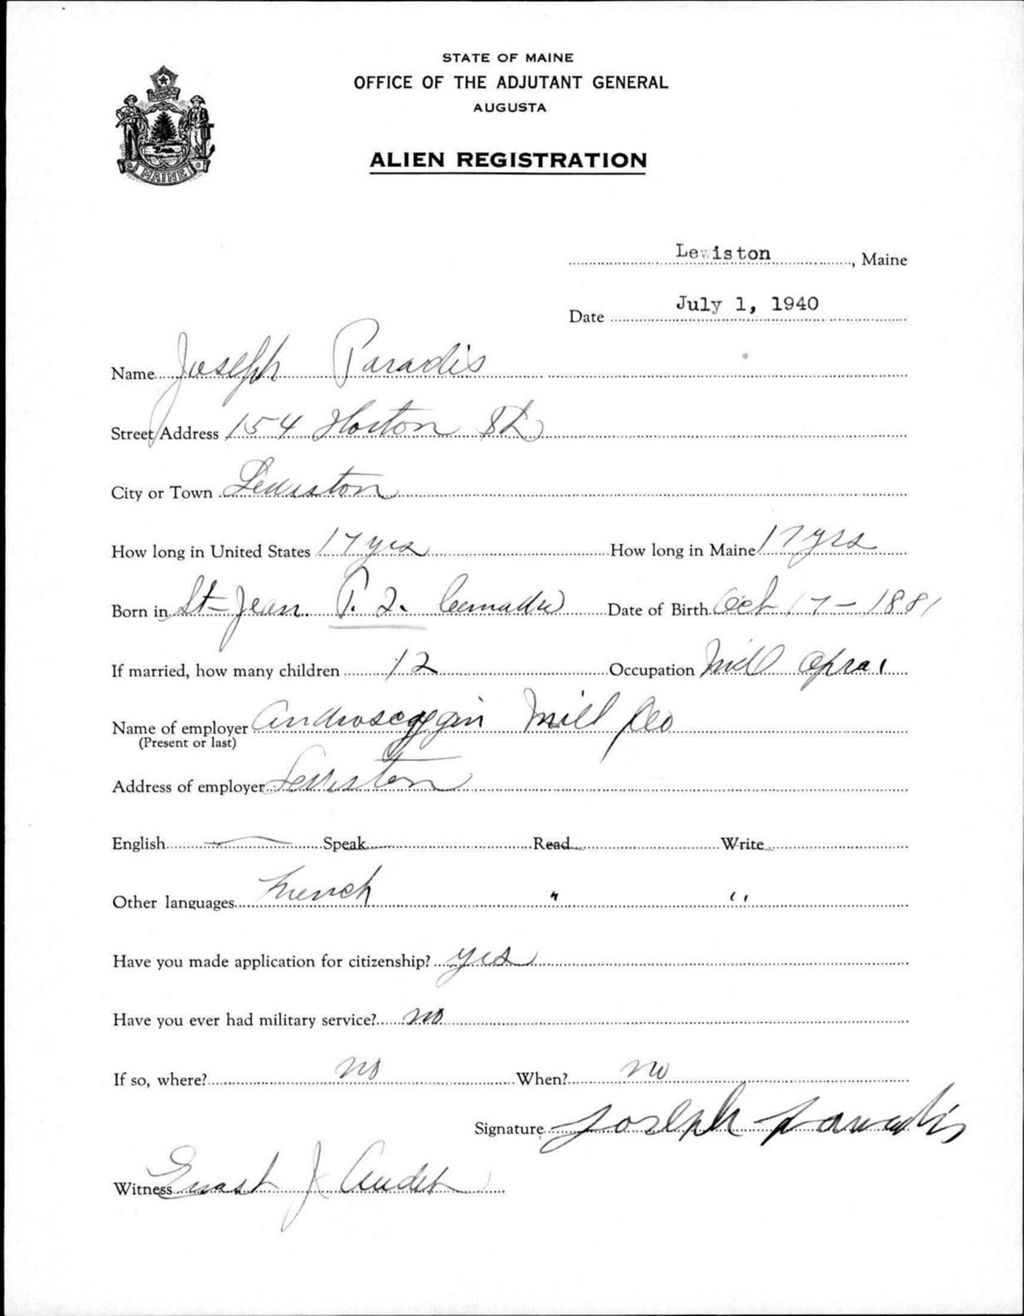 STATE OF MAINE
OFFICE OF THE ADJUTANT GENERAL
AUGUSTA
ALIEN REGISTRATION
MAINE
Lewiston, Maine
Date July 1, 1940
Name Joseph Paradis
Street Address 154 Horton St
City or Town Lewiston
How long in United States 17 yrs How long in Maine 17 yrs
Born in St-Jean P. Q. Canada Date of Birth Oct 17-1881
If married, how many children 12 Occupation Mill
Name of employer Androscoggin Mill Co
(Present or last)
Address of employer Lewiston
English — Speak Read Write
Other languages French " "
Have you made application for citizenship? yes
Have you ever had military service? no
If so, where? no When? no
Signature Joseph Paradis
Witness J Audet